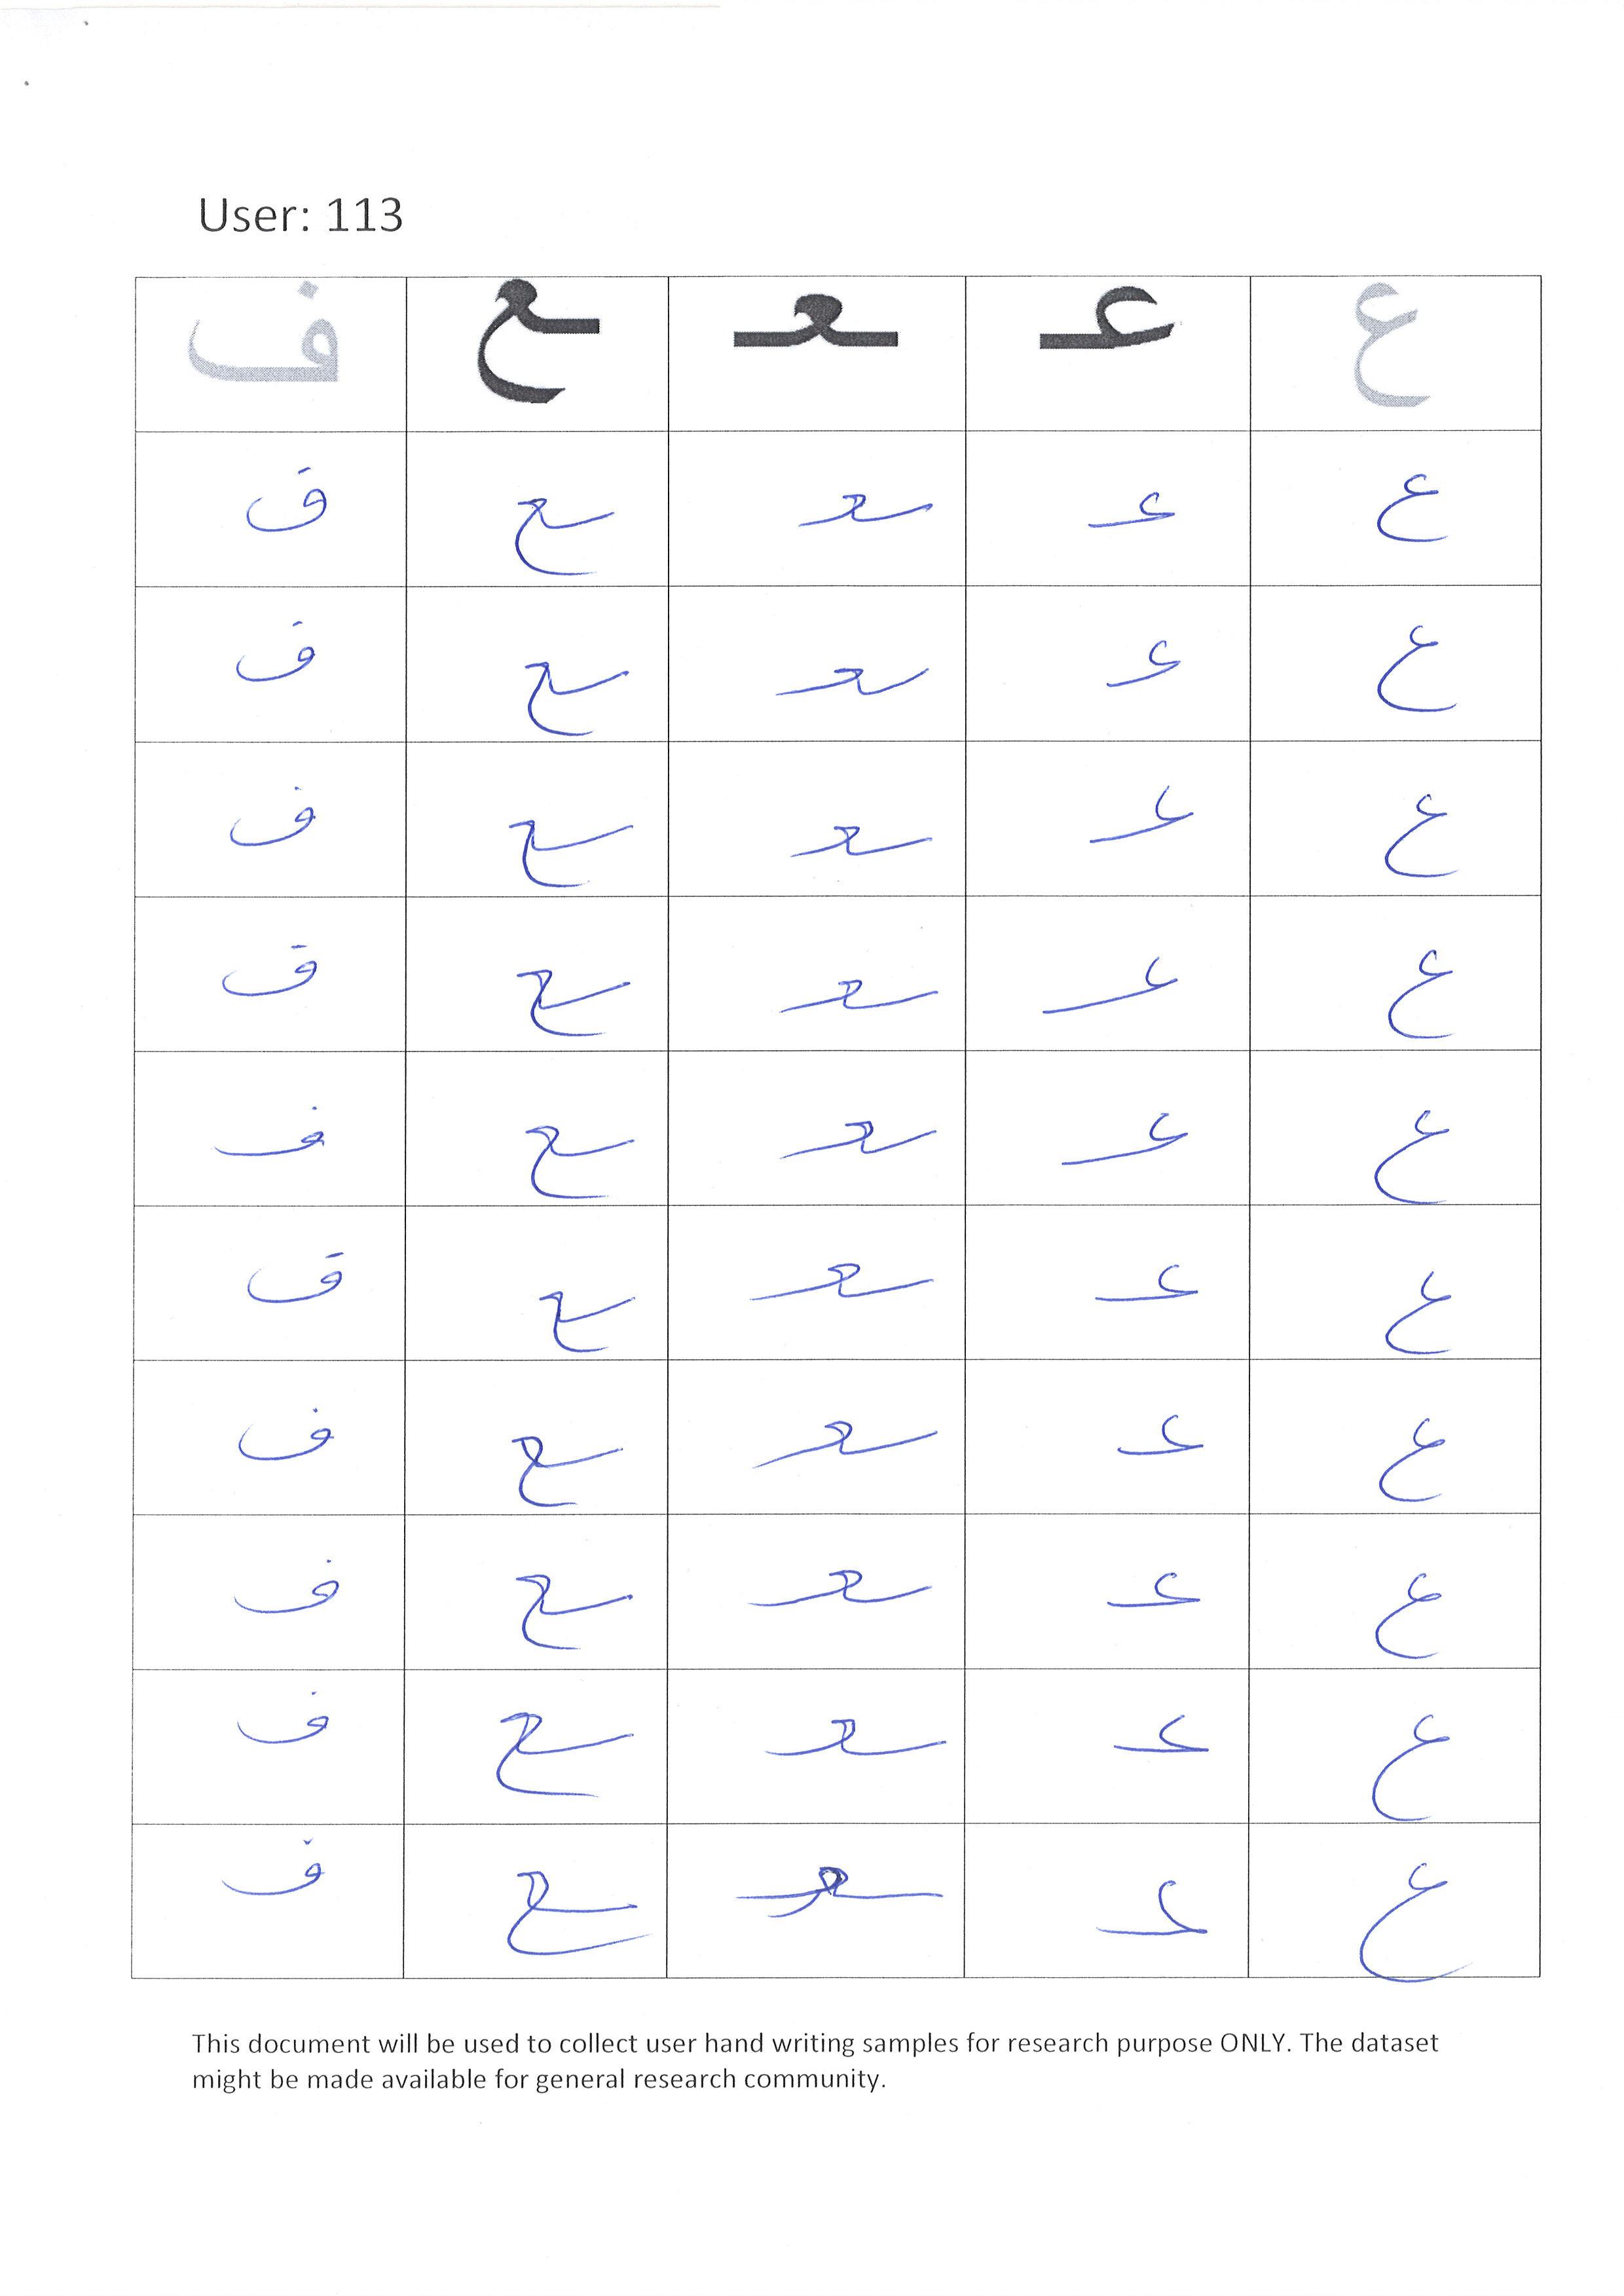 User: 113
ع عـ ـعـ ـع ف
ع عـ ـعـ ـع ف
ع عـ ـعـ ـع ف
ع عـ ـعـ ـع ف
ع عـ ـعـ ـع ف
ع عـ ـعـ ـع ف
ع عـ ـعـ ـع ف
ع عـ ـعـ ـع ف
ع عـ ـعـ ـع ف
ع عـ ـعـ ـع ف
ع عـ ـعـ ـع ف
This document will be used to collect user hand writing samples for research purpose ONLY. The dataset
might be made available for general research community.